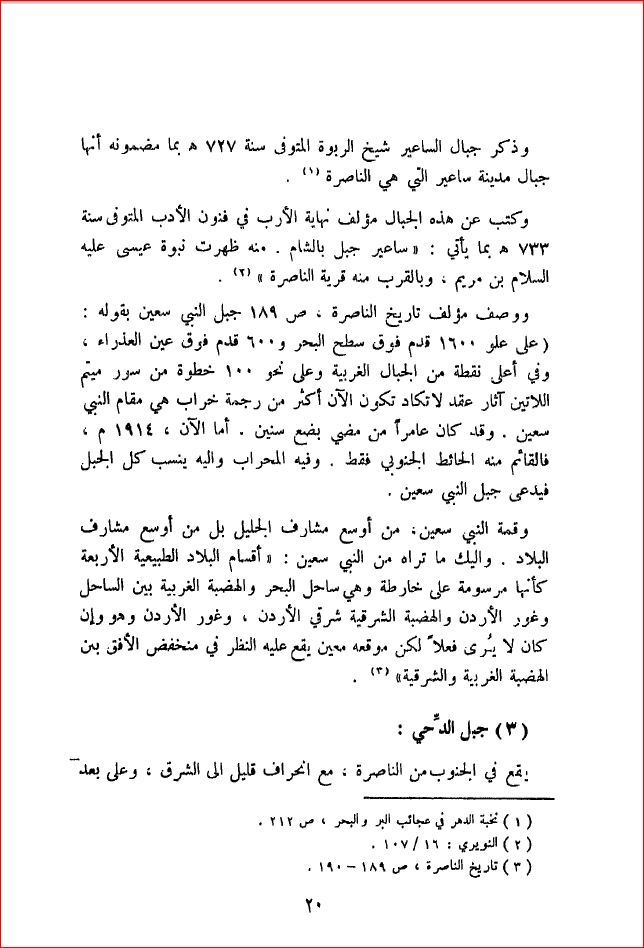 وذكر جبال الساعير شيخ الربوة المتوفى سنة ٧٢٧ ه بما مضمونه أنها
جبال مدينة ساعير التي هي الناصرة (١) .
وكتب عن هذه الجبال مؤلف نهاية الأرب في فنون الأدب المتوفى سنة
٧٣٣ ه بما يأتي : « ساعير جبل بالشام . منه ظهرت نبوة عيسى عليه
السلام بن مريم ، وبالقرب منه قرية الناصرة » (٢) .
ووصف مؤلف تاريخ الناصرة ، ص ١٨٩ جبل النبي سعين بقوله :
( على علو ١٦٠٠ قدم فوق سطح البحر و٦٠٠ قدم فوق عين العذراء ،
وفي أعلى نقطة من الجبال الغربية وعلى نحو ١٠٠ خطوة من سور ميتم
اللاتين آثار عقد لا تكاد تكون الآن أكثر من رجمة خراب هي مقام النبي
سعين . وقد كان عامراً من مضي بضع سنين . أما الآن ، ١٩١٤ م ،
فالقائم منه الحائط الجنوبي فقط . وفيه المحراب واليه ينسب كل الجبل
فيدعى جبل النبي سعين .
وقمة النبي سعين، من أوسع مشارف الجليل بل من أوسع مشارف
البلاد . واليك ما تراه من النبي سعين : « أقسام البلاد الطبيعية الأربعة
كأنها مرسومة على خارطة وهي ساحل البحر والهضبة الغربية بين الساحل
وغور الأردن والهضبة الشرقية شرقي الأردن ، وغور الأردن وهو وإن
كان لا يُرى فعلاً لكن موقعه معين يقع عليه النظر في منخفض الأفق بين
الهضبة الغربية والشرقية» (٣) .
( ٣ ) جبل الدّحي :
يقع في الجنوب من الناصرة ، مع انحراف قليل الى الشرق ، وعلى بعد
( ١ ) نخبة الدهر في عجائب البر والبحر ، ص ٢١٢ .
( ٢ ) النويري : ١٦ / ١٠٧ .
( ٣ ) تاريخ الناصرة ، ص ١٨٩ – ١٩٠ .
٢٠